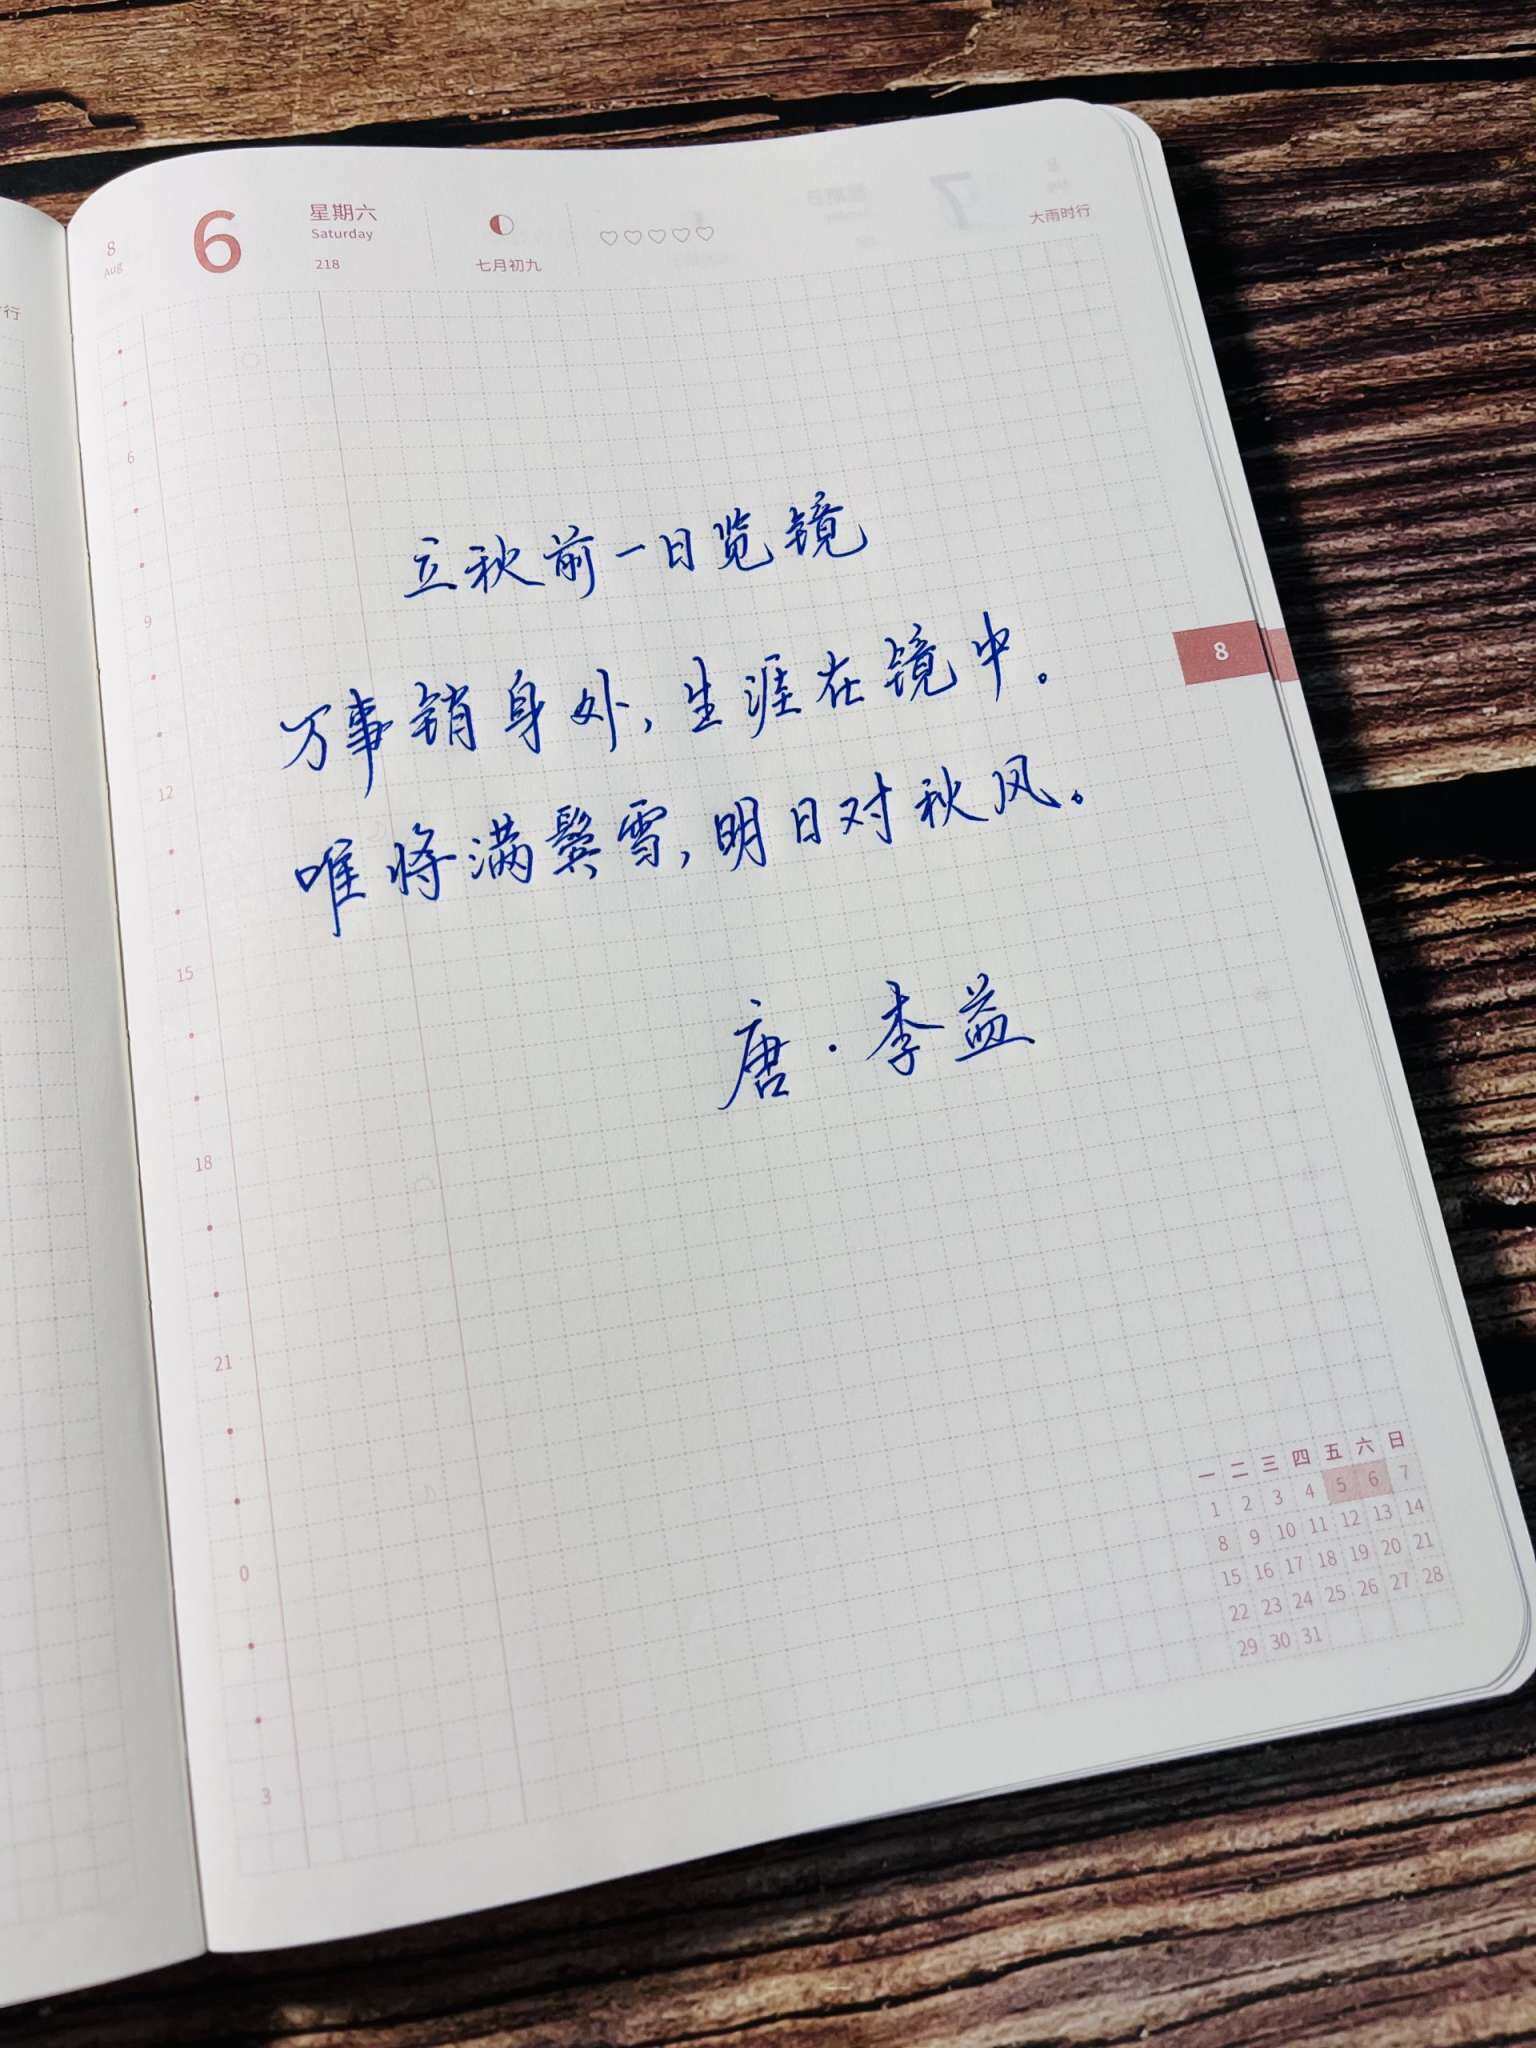 8
Aug
6
星期六
Saturday
218
七月初九
大雨时行
行
立秋前一日览镜
万事销身处，生涯在镜中。
唯将满鬓雪，明日对秋风。
唐·李益
8
6
9
12
15
18
21
0
3
一 二 三 四 五 六 日
1 2 3 4 5 6 7
8 9 10 11 12 13 14
15 16 17 18 19 20 21
22 23 24 25 26 27 28
29 30 31